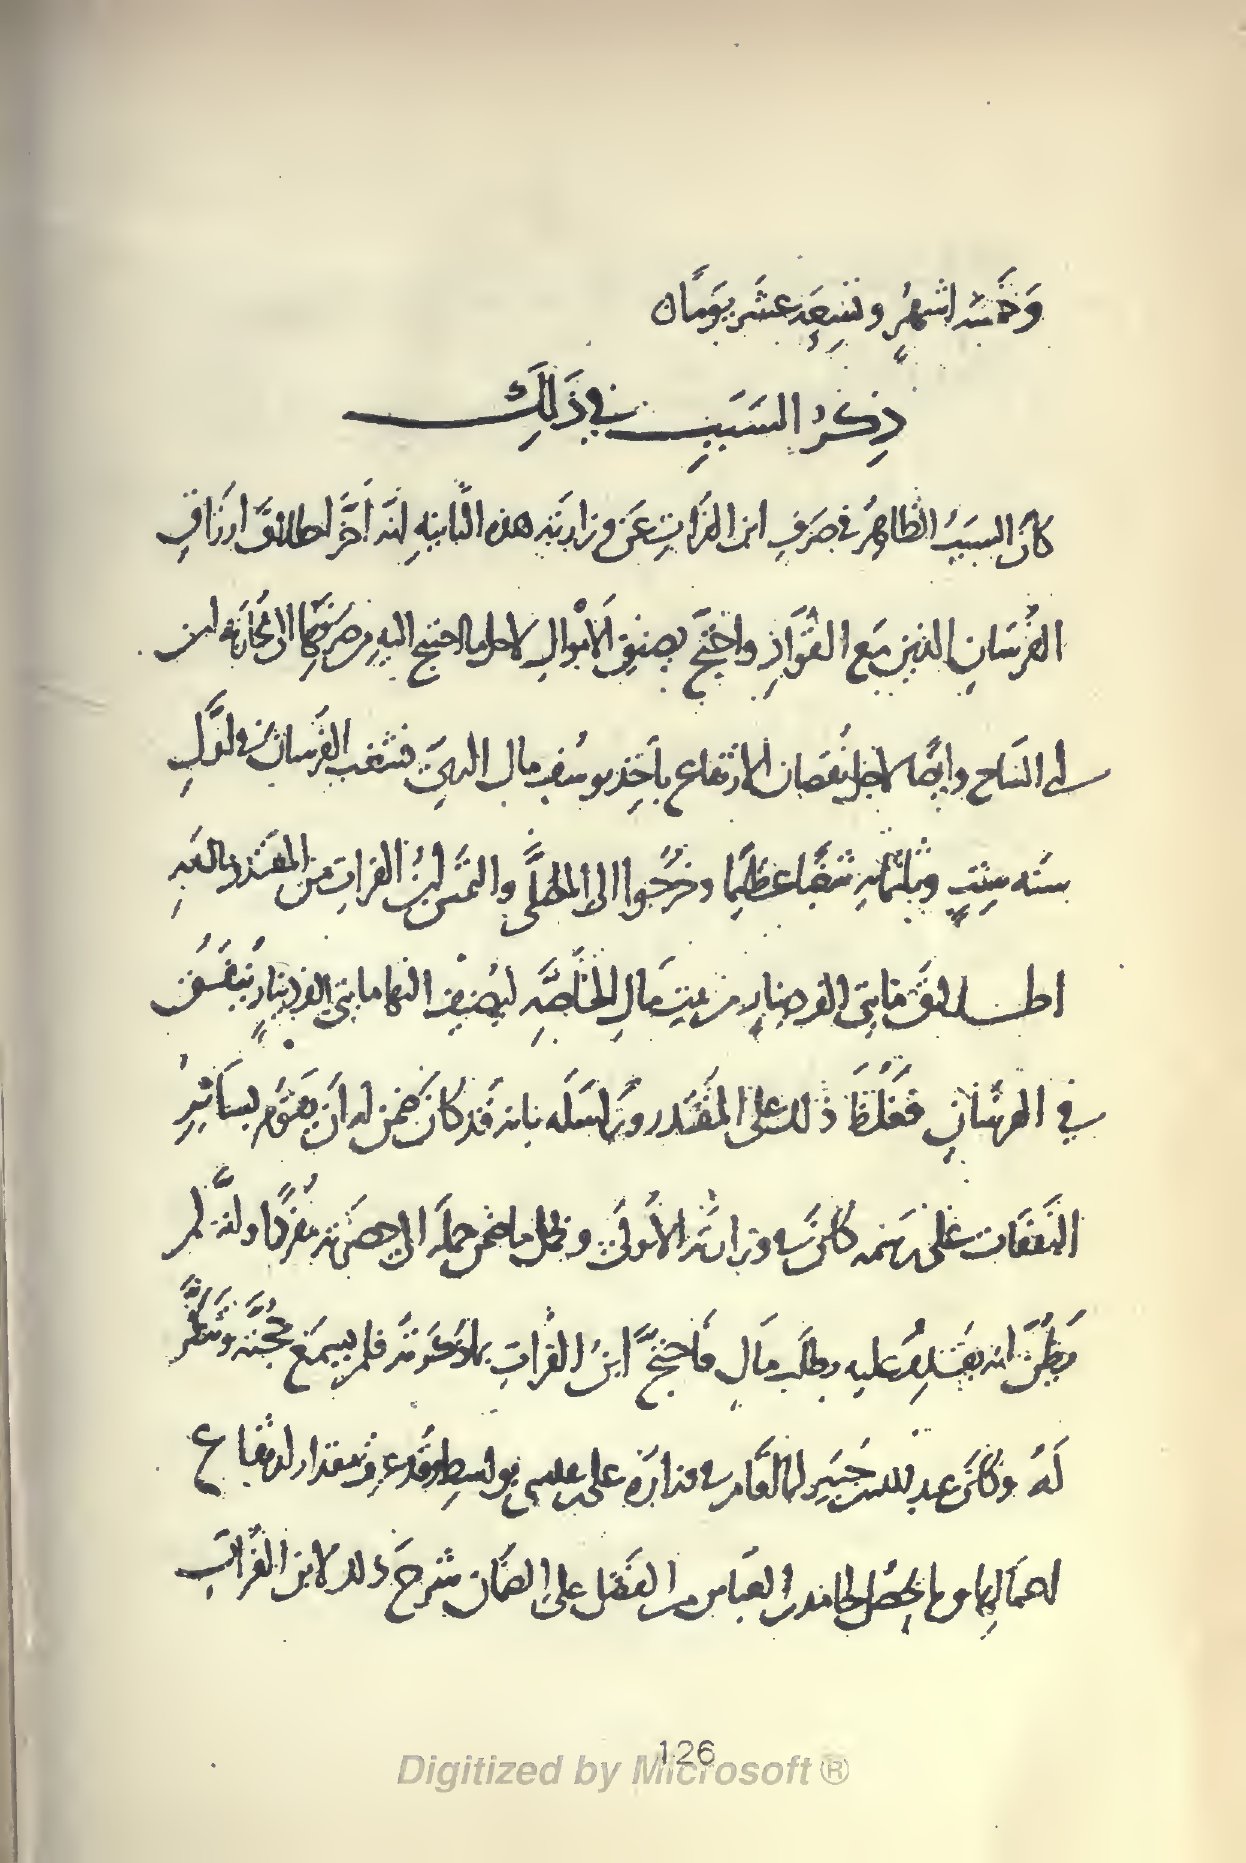 وَخَمسَة اشهُرٍ وتسِعَة عشَر يَومًا
ذِكرُ السَبَبِ في ذَلِكَ
كانَ السبَبُ الظاهِرُ في صَرفِ ابن الفرَاتِ عَن وزارَته هذه الثانيَهِ انّه أخَّر اطلاقَ ارزَاقِ
الفُرسَانِ الذين مَع القُوَّادِ واحتَجَّ بضيقِ الأموَالِ لاجل ما احتيج اليهِ من صَرفِهَا الى محُارَبَة ابن
ابي السَاج وايضًا لاجل نُقصَان الارتفاع بأخِذ يوسُف مال الريّ فشغَب الفُرسَان في اوّلِ
سنَه سِتٍّ وثلثمايَهِ شغَبًا عظيمًا وخَرجُوا الى المصَلَّى والتمسَ ابنُ الفرات من المقتدر بالله
اطلاقَ مايتَي الف دينارٍ من بيت مَالِ الخَاصَّهِ ليُضيفَ اليها مايتي الف دينارٍ يُنفقُ
في الفرسَانِ فغَلُظَ ذلك على المقتَدر ورَاسَلَه بانه قَد كان ضَمن له أن يقوُم بسَائرِ
النَفقَات على رَسمِه كان في وزارَتِه الأُولىَ وبحمل ما ضمن حملَه الى حضرَته مفردًا وانّه لم
يَظُنّ انه يقدِمُ عليه بطلب مَالٍ فاحتَجَّ ابنُ الفُراتِ بمَا ذكَرتُه فلم يسمَع حُجّته وتنَكّرَ
لَهُ وكانَ عبد الله بن جُبَير لما أقَام في وزارَه علي بن عيسى بواسِط وقَفَ على مقدار ارتفاع
اعمَالِها وما يحصُل لحامد بن العباس من الفَضل على الضَمان شَرحَ ذلك لابن الفُراتِ
126
Digitized by Microsoft ®